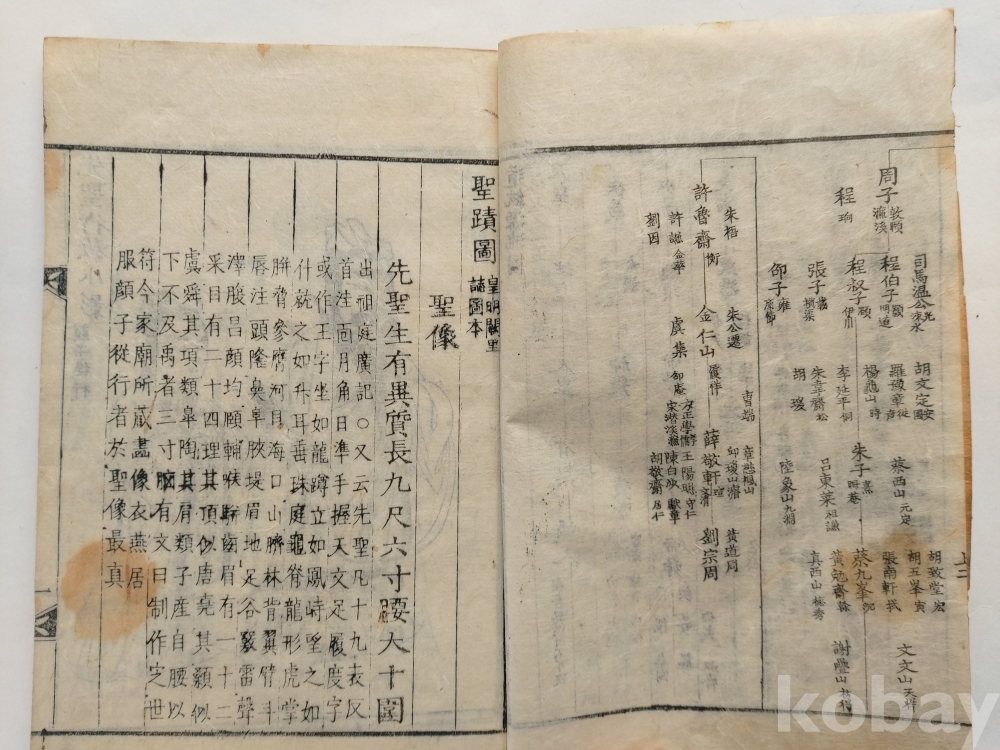 周子敦頤濂溪
程珦
司馬溫公光涑水
程伯子顥明道
程叔子頤伊川
張子載橫渠
邵子雍康節
胡文定安國
羅豫章從彥
楊龜山時
李延平侗
朱韋齋松
胡瑗
朱子熹晦菴
蔡西山元定
呂東萊祖謙
陸象山九淵
胡致堂宏
胡五峯寅
張南軒栻
蔡九峯沉
黃勉齋榦
真西山德秀
文文山天祥
謝疊山枋得
朱梧
許魯齋衡
許謙金華
劉因
朱公遷
金仁山履祥
虞集邵庵
曺端
章楓山
邱瓊山濬
薛敬軒瑄
方正學
王陽明守仁
宋潛溪濂
陳白沙獻章
胡敬齋居仁
黃道周
劉宗周
上二
聖蹟圖皇明闕里誌圖本
聖像
先聖生有異質長九尺六寸腰大十圍
出祖庭廣記○又云先聖凡十九表反
首洼面月角日準手握天文足履度字
或作王字坐如龍蹲立如鳳峙望之如
什就之如升耳垂珠庭龜脊龍形虎掌
胼脅參膺河目海口山臍林背翼臂斗
唇注頭隆鼻阜脥堤眉地足谷竅雷聲
澤腹昌顏均頤輔喉騈齒眉有一十二
采目有二十四理其頂似唐堯其顙似
虞舜其項類皐陶其肩類子產自腰以
下不及禹者三寸胸有文曰制作定世
符今家廟所藏畵像衣燕居
服顏子從行者於聖像最真
一
kobay